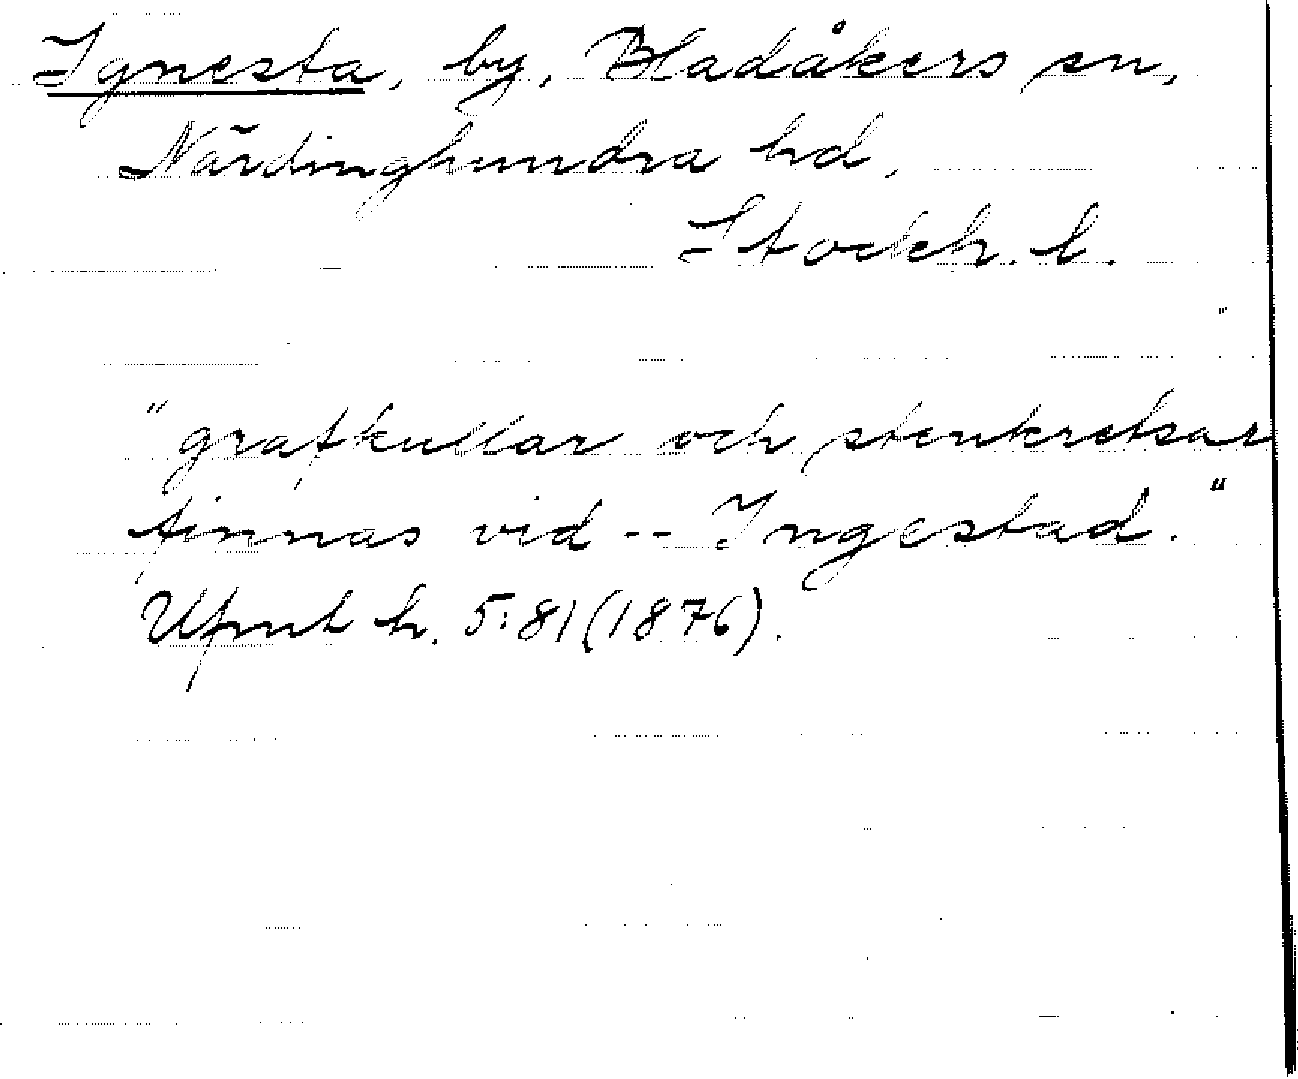 Ignesta, by, Bladåkers sn,
Närdinghundra hd,
Stockh. l.
"grafkullar och stenkretsar
finnas vid -- Ingestad."
Ufmt h. 5:81 (1876).